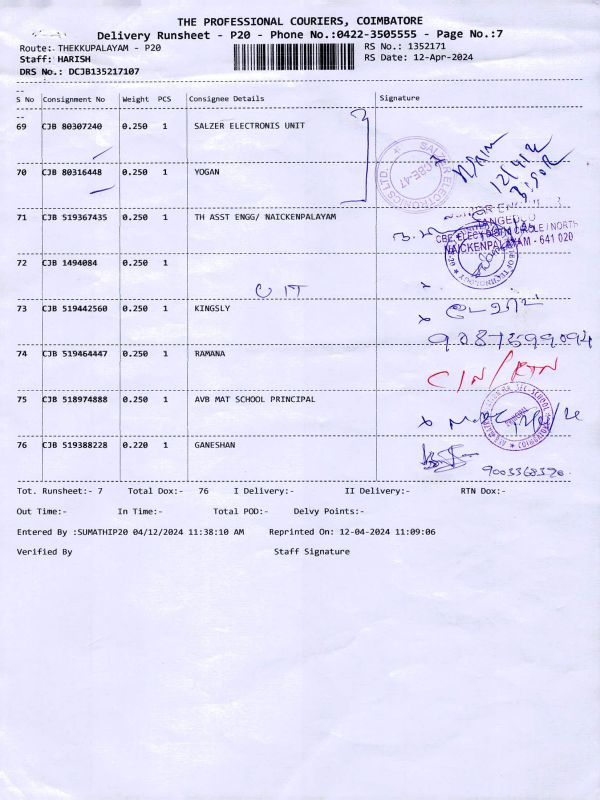 THE PROFESSIONAL COURIERS, COIMBATORE
Delivery Runsheet - P20 - Phone No.:0422-3505555 - Page No.:7
Route:. THEKKUPALAYAM - P20
RS No.: 1352171
Staff: HARISH
RS Date: 12-Apr-2024
DRS No.: DCJB135217107
S No Consignment No Weight PCS Consignee Details Signature
69 CJB 80307240 0.250 1 SALZER ELECTRONIS UNIT
70 CJB 80316448 0.250 1 YOGAN
SALZER ELECTRONICS LTD. CBE-47
71 CJB 519367435 0.250 1 TH ASST ENGG/ NAICKENPALAYAM
TANGEDCO
NAICKENPALAYAM - 641 020
72 CJB 1494084 0.250 1
CIT
73 CJB 519442560 0.250 1 KINGSLY
74 CJB 519464447 0.250 1 RAMANA
C/N/RTN
75 CJB 518974888 0.250 1 AVB MAT SCHOOL PRINCIPAL
76 CJB 519388228 0.220 1 GANESHAN
9003368320.
Tot. Runsheet:- 7 Total Dox:- 76 I Delivery:- II Delivery:- RTN Dox:-
Out Time:- In Time:- Total POD:- Delvy Points:-
Entered By :SUMATHIP20 04/12/2024 11:38:10 AM Reprinted On: 12-04-2024 11:09:06
Verified By Staff Signature